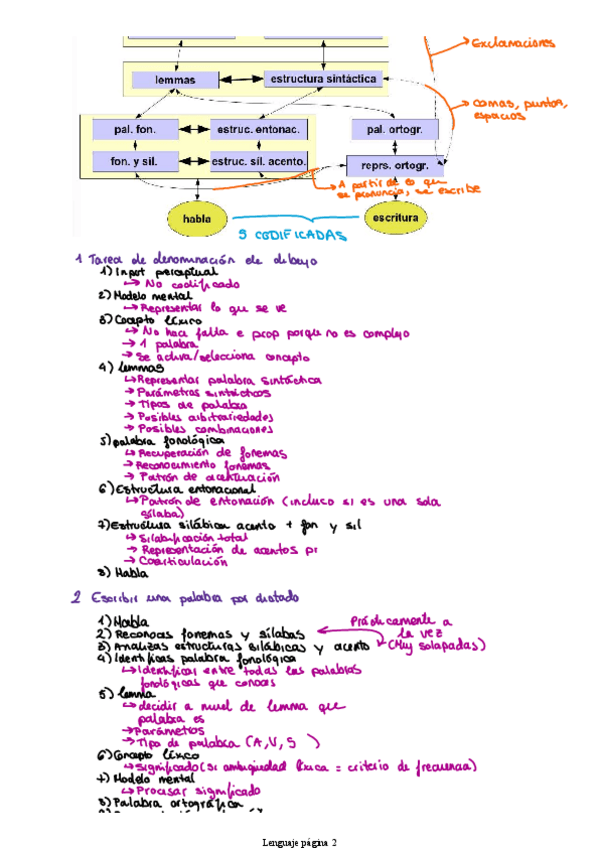 Exclamaciones
lemmas
estructura sintáctica
comas, puntos,
espacios
pal. fon.
estruc. entonac.
pal. ortogr.
fon. y sil.
estruc. síl. acento.
reprs. ortogr.
A partir de lo que
se pronuncia, se escribe
habla
escritura
S CODIFICADAS
1 Tarea de denominación de dibujo
1) Input perceptual
→ No codificado
2) Modelo mental
→ Representar lo que se ve
3) Cocepto léxico
→ No hace falta e prop porque no es complejo
→ 1 palabra
→ Se activa/selecciona concepto
4) Lemmas
→ Representar palabra sintáctica
→ Parámetros sintácticos
→ Tipos de palabra
→ Posibles arbitrariedades
→ Posibles combinaciones
5) palabra fonológica
→ Recuperación de fonemas
→ Reconocimiento fonemas
→ Patrón de acentuación
6) Estructura entonacional
→ Patrón de entonación (incluso si es una sola
sílaba)
7) Estructura silábica acento + fon y sil
→ Silabificación total
→ Representación de acentos pr
→ Coarticulación
8) Habla
2 Escribir una palabra por dictado
1) Habla
2) Reconoces fonemas y sílabas
3) Analizas estructuras silábicas y acento
Prácticamente a
la vez
(Muy solapadas)
4) Identificas palabra fonológica
→ Identificar entre todas las palabras
fonológicas que conoces
5) Lemma
→ decidir a nivel de lemma que
palabra es
→ Parámetros
→ Tipo de palabra (A, V, S )
6) Concepto léxico
→ Significado (Si ambigüedad léxica = criterio de frecuencia)
7) Modelo mental
→ Procesar significado
8) Palabra ortográfica
Lenguaje página 2